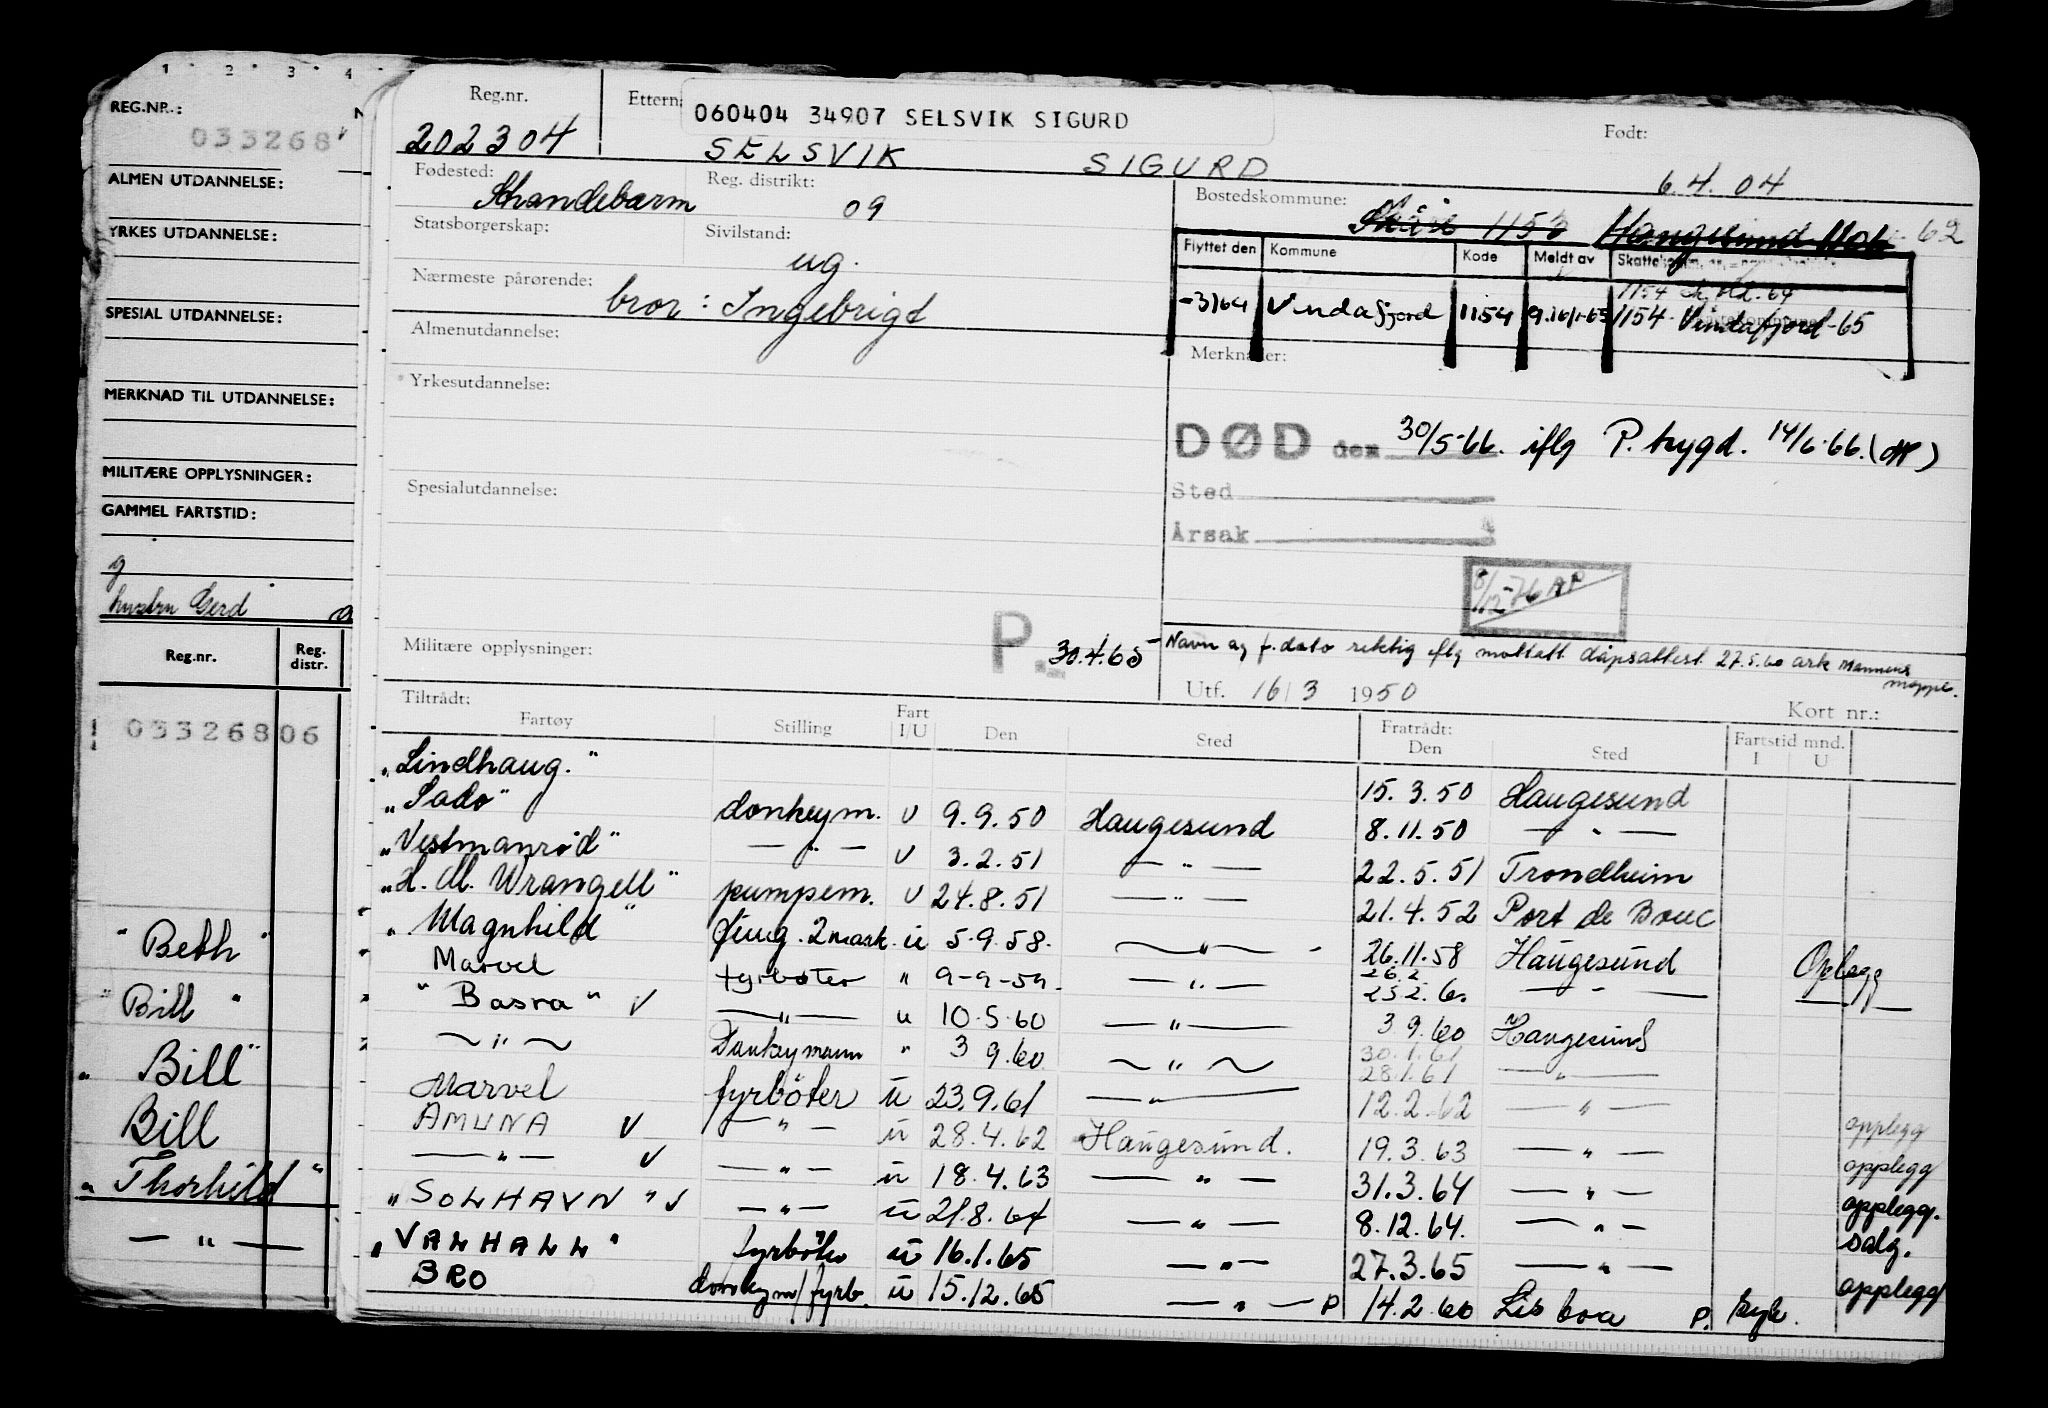 1 2 3 4
REG.NR.: N
033268
ALMEN UTDANNELSE:
YRKES UTDANNELSE:
SPESIAL UTDANNELSE:
MERKNAD TIL UTDANNELSE:
MILITÆRE OPPLYSNINGER:
GAMMEL FARTSTID:
g
hustru Gerd
Reg.nr. Reg. distr.
033268 06
"Beth"
"Bill"
"Bill"
Bill
"Thorhild"
— " —
Reg.nr. Ettern: 060404 34907 SELSVIK SIGURD Født:
202304 SELSVIK SIGURD 6.4.04
Fødested: Strandebarm Reg. distrikt: 09 Bostedskommune: Skåre 1153 Haugesund 62
Statsborgerskap: Sivilstand: ug.
Flyttet den Kommune Kode Meldt av
-3/64 Vindafjord 1154 1154 Vindafjord-65
Nærmeste pårørende: bror: Ingebrigt
Almenutdannelse:
Merknader:
Yrkesutdannelse:
DØD den 30/5-66. iflg P. trygd. 14/6-66.
Spesialutdannelse:
Sted
Årsak
8/12-76
Militære opplysninger: P. 30.4.65
Navn og f.dato riktig iflg mottatt dåpsattest 27.5.60 ark mannens mappe.
Utf. 16/3 1950 Kort nr.:
Tiltrådt: Fratrådt:
Fartøy Stilling Fart I/U Den Sted Den Sted Fartstid mnd. I U
"Lindhaug." 15.3.50 Haugesund
"Sado" donkeym. U 9.9.50 Haugesund 8.11.50 — " —
"Vestmanrød" — " — U 3.2.51 — " — 22.5.51 Trondheim
"H. M. Wrangell" pumpem. U 24.8.51 — " — 21.4.52 Port de Bouc
"Magnhild" 2 mask. u 5.9.58. — " — 26.11.58 Haugesund Opplegg
Marvel fyrbøter " 9-9-59. — " — 26.2 25.2.60 — " —
"Basra" V — " — u 10.5.60 — " — 3 9.60 Haugesund
— " — Donkeymann " 3 9.60 — " — 30.1.61 28.1.61 — " —
Marvel fyrböter u 23.9.61 — " — 12.2.62 — " — opplegg
AMUNA V — " — u 28.4.62 Haugesund. 19.3.63 — " — opplegg
— " — V — " — u 18.4.63 — " — 31.3.64 — " — opplegg.
"SOLHAVN" V — " — u 21.8.64 — " — 8.12.64. — " — salg.
"VALHALL" fyrböter u 16.1.65 — " — 27.3.65 — " — opplegg
BRO donkeym/fyrb. u 15.12.65 — " — P 14.2.66 Lisboa P. syk.